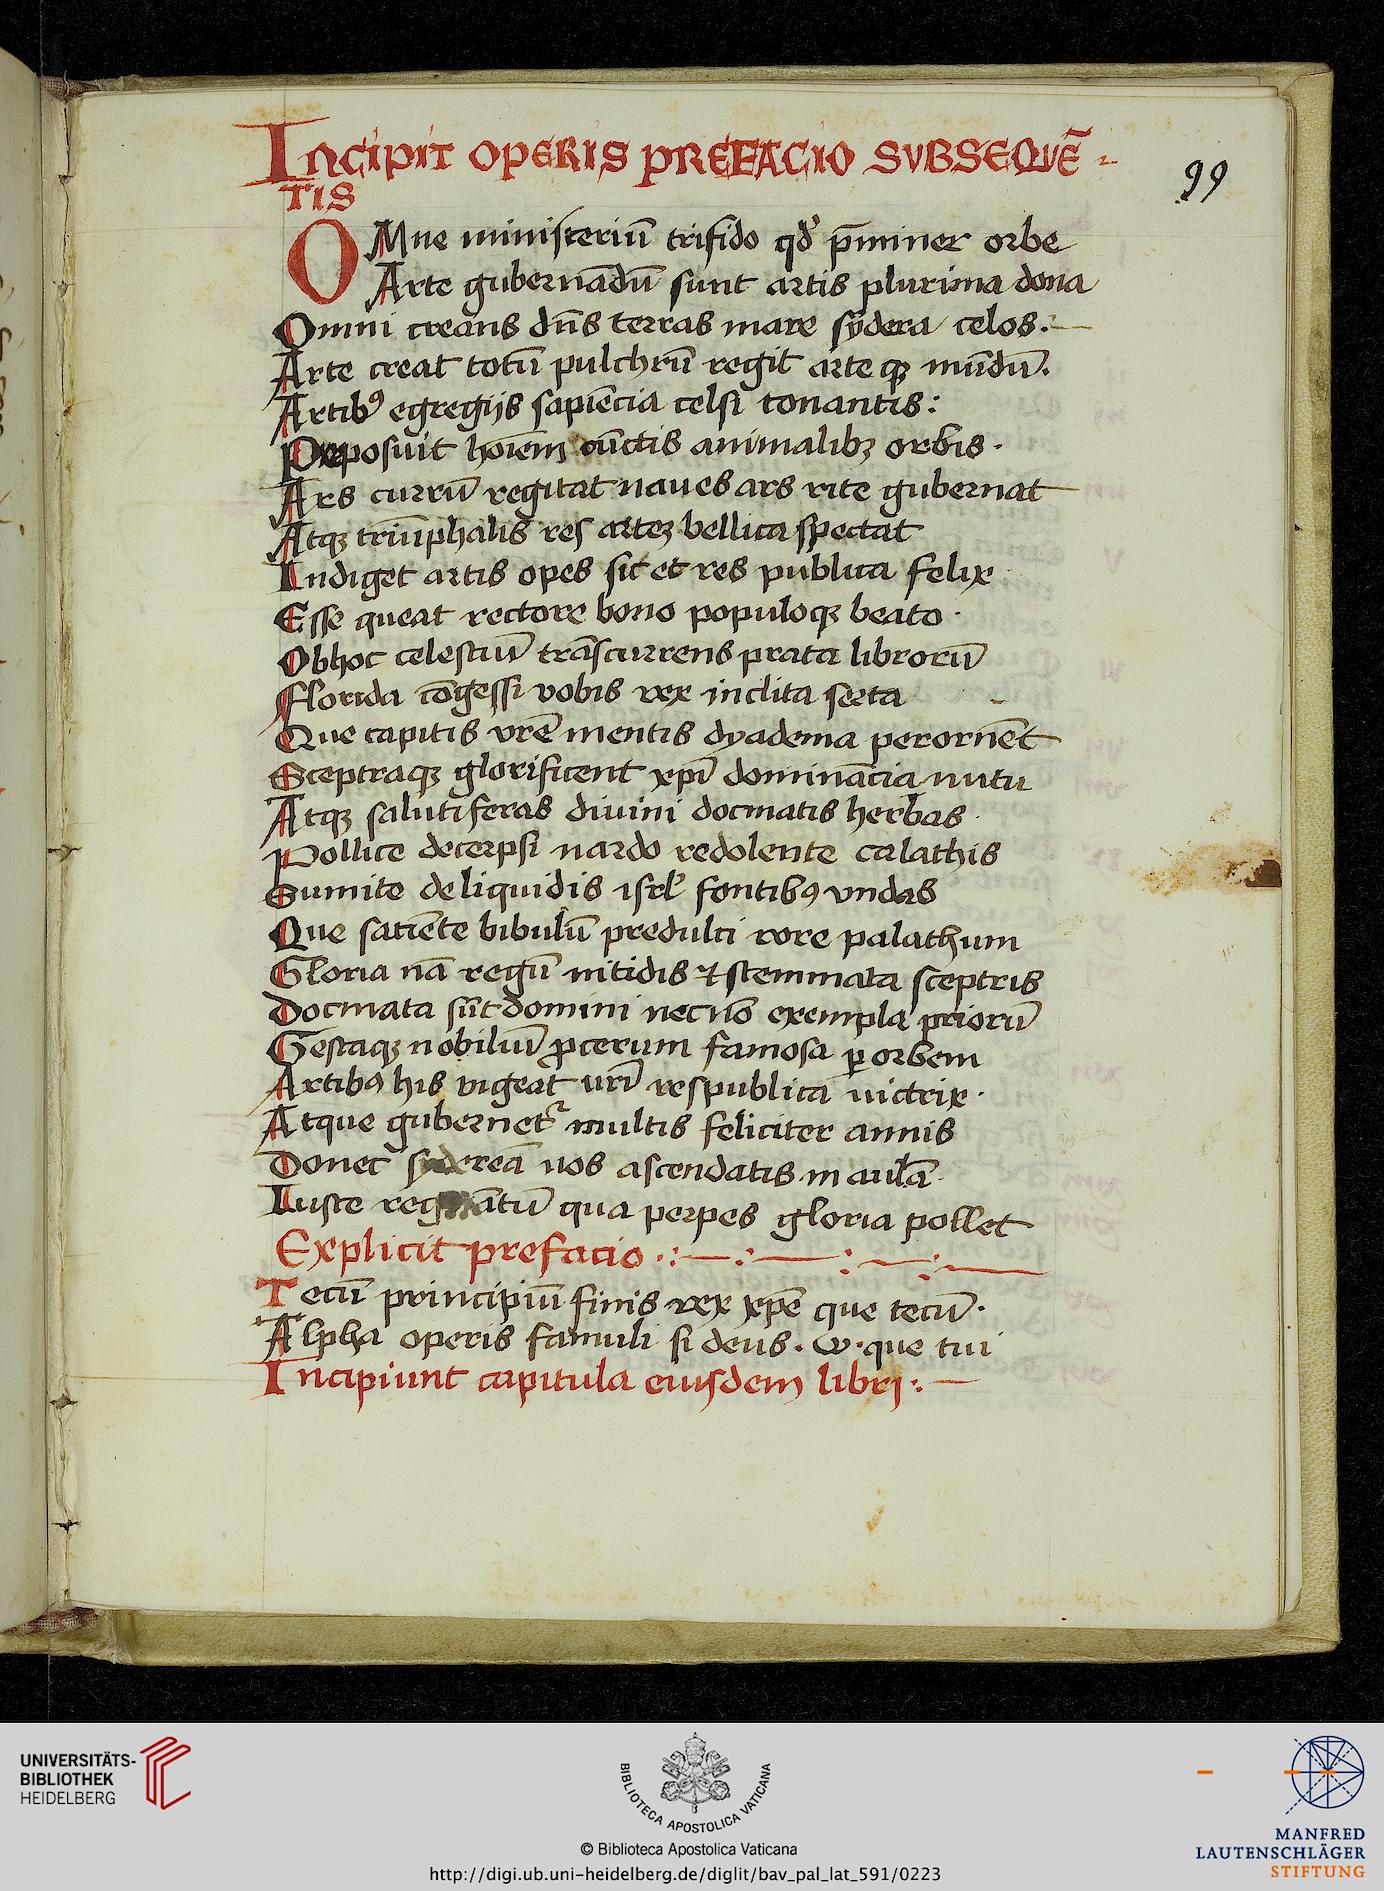 Incipit operis prefacio subsequē-
tis
99
OMne ministeriū trifido qd̕ p̄minet orbe
Arte gubernādū sunt artis plurima dona
Omni creans dn̄s terras mare sydera celos.
Arte creat totū pulchrū regit arteqꝫ mūdū.
Artibꝰ egregijs sapiēcia celsi tonantis:
Preposuit hoīem cūctis animalibꝫ orbis.
Ars currū regitat naues ars rite gubernat
Atqꝫ triūphalis res arteꝫ bellica spectat
Indiget artis opes sit et res publica felix
Esse queat rectore bono populoqꝫ beato.
Obhoc celestiū trāscurrens prata librorū
Florida cōgessi vobis rex inclita serta
Que capitis vrē mentis dyadema perornēt
Sceptraqꝫ glorificent xpī domināciā nutu
Atqꝫ salutiferas diuini docmatis herbas
Pollice decerpsi nardo redolente calathis
Sumite de liquidis isrl̕ fontibꝰ vndas
Que saciēte bibulū predulci rore palathum
Gloria nā regū nitidis ⁊ stemmata sceptris
Docmata sūt domini necnō exempla priorū
Gestaqꝫ nobiliū ꝓcerum famosa ꝑ orbem
Artibꝰ his vigeat vrī respublica victrix.
Atque gubernet᷑ multis feliciter annis
Donec sydereā uos ascendatis in aulā.
Iuste regnātū qua perpes gloria pollet
Explicit prefacio
Tecū principiū finis rex xp̄e que tecū.
Alpha operis famuli si deus. ω. que tui
Incipiunt capitula eiusdem libri
UNIVERSITÄTS-
BIBLIOTHEK
HEIDELBERG
BIBLIOTECA APOSTOLICA VATICANA
© Biblioteca Apostolica Vaticana
http://digi.ub.uni-heidelberg.de/diglit/bav_pal_lat_591/0223
MANFRED
LAUTENSCHLÄGER
STIFTUNG